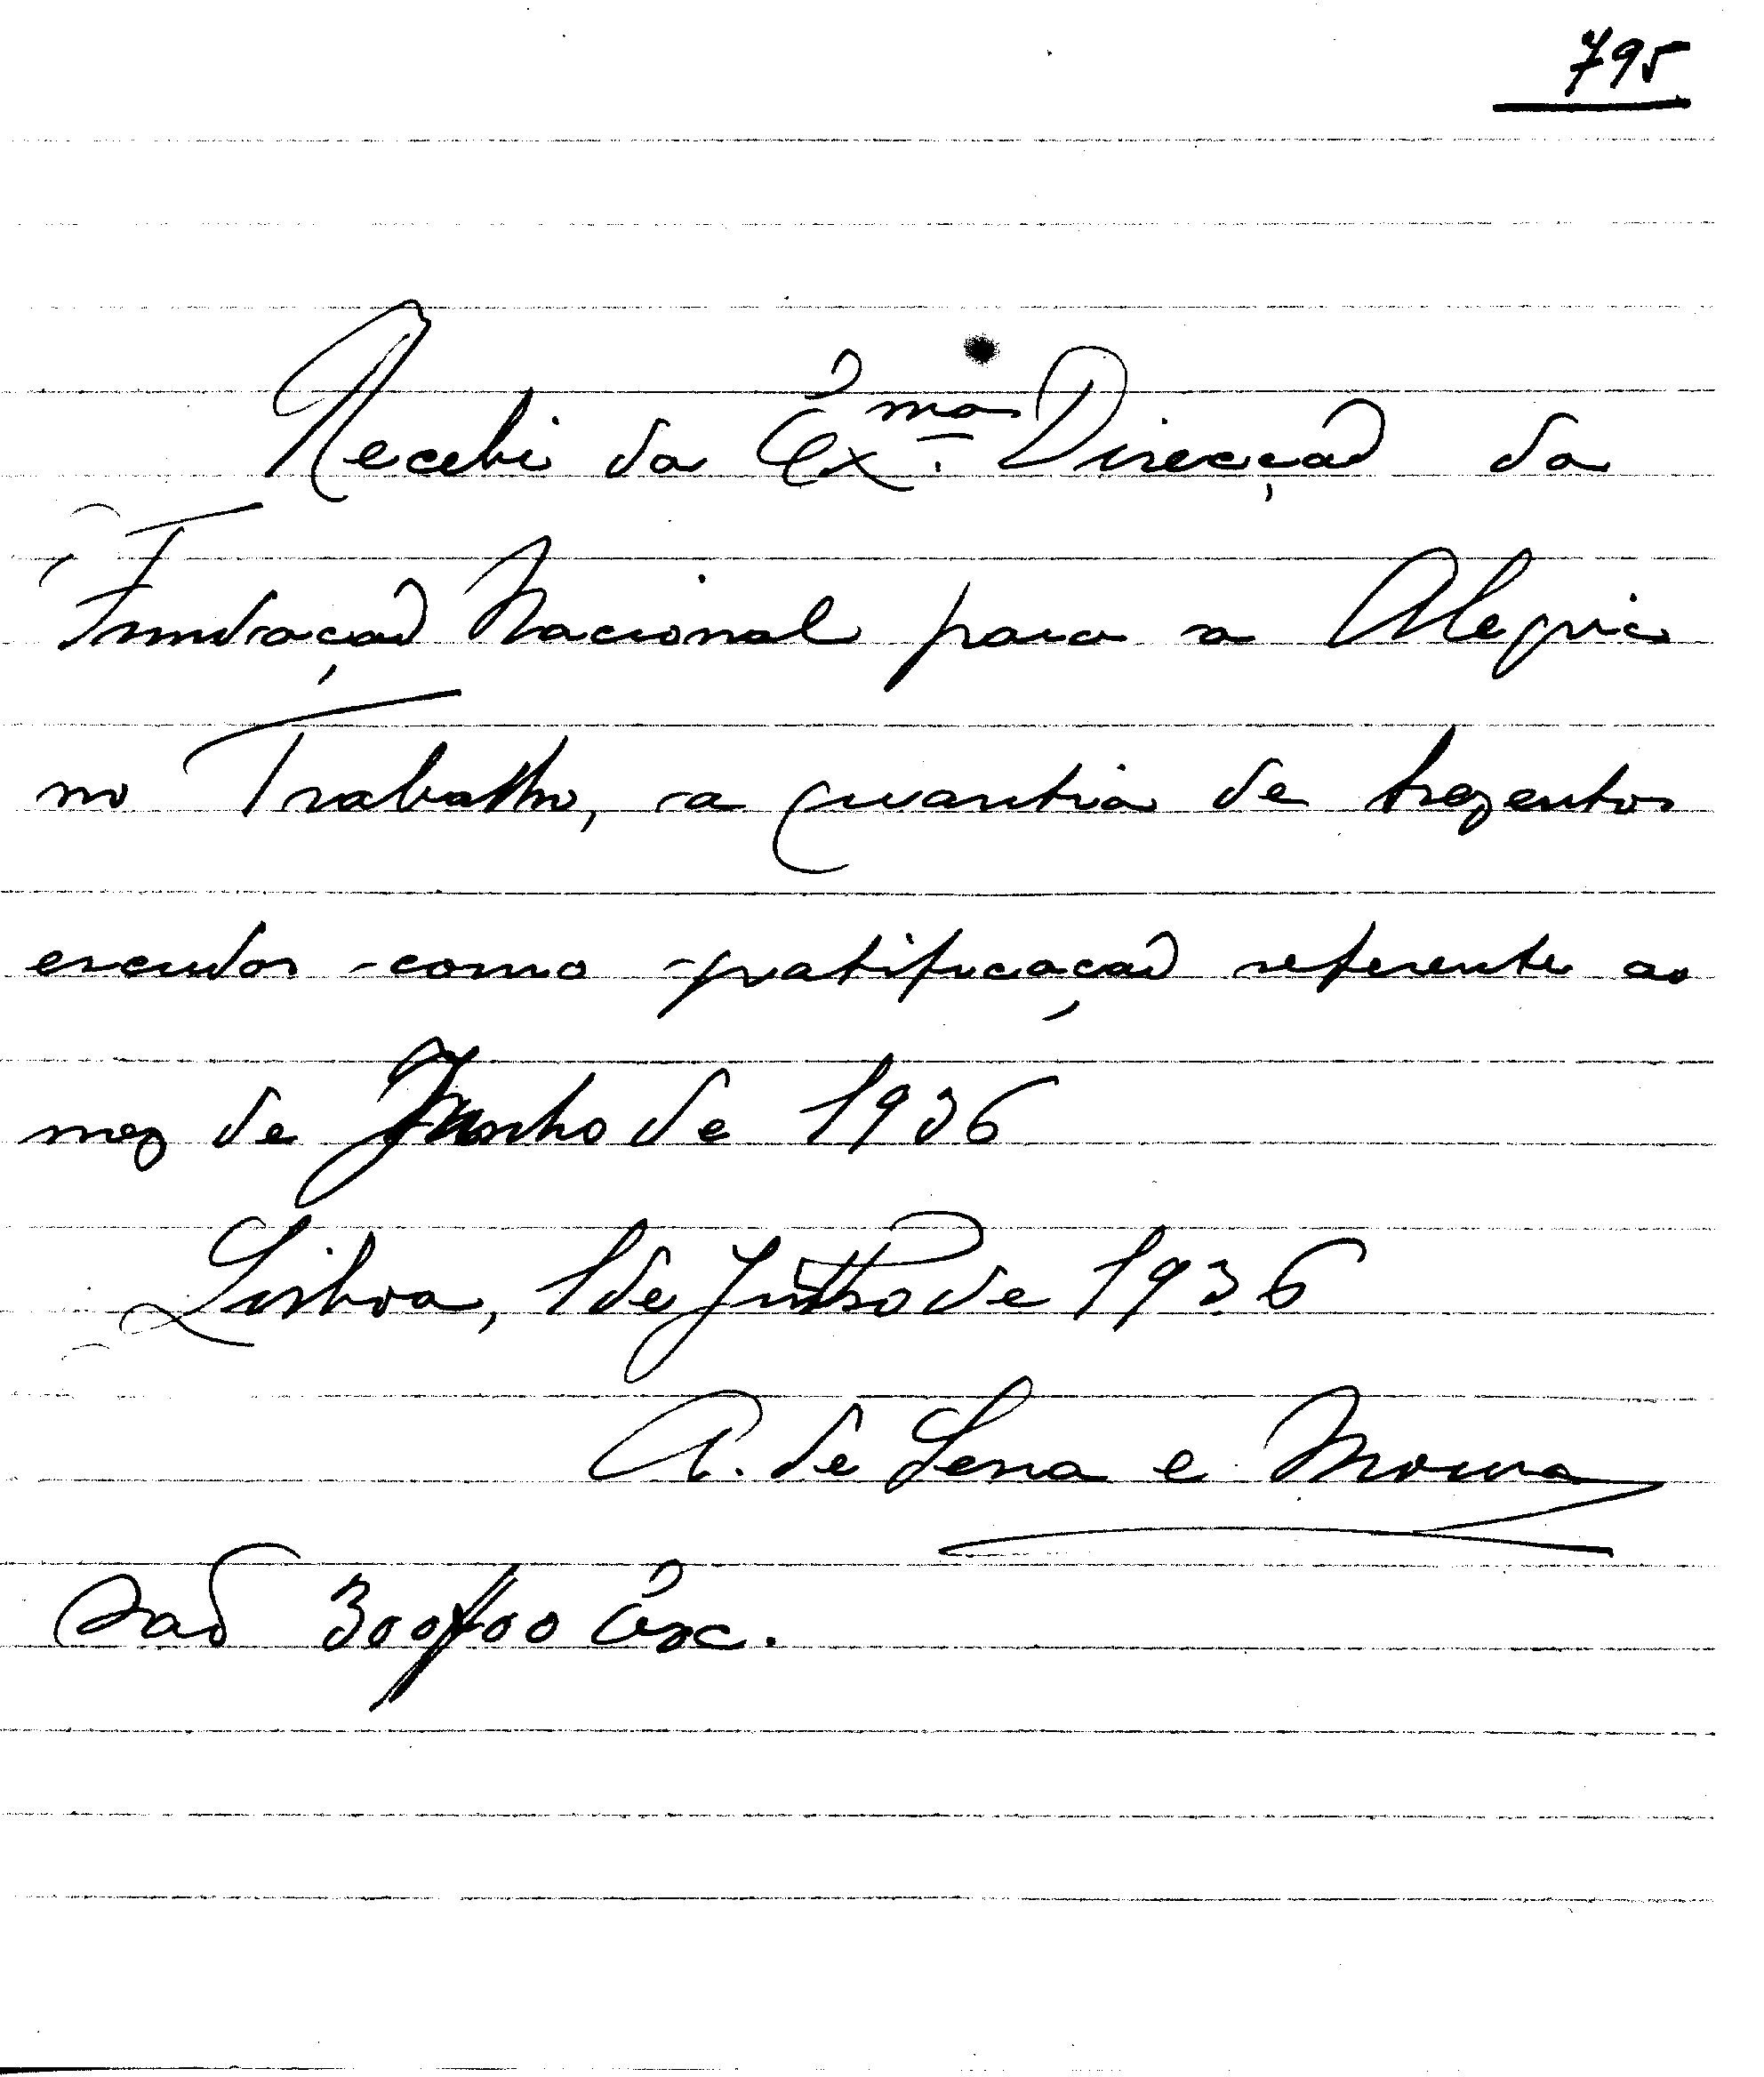 795
Recebi da Exma. Direcção da
Fundação Nacional para a Alegria
no Trabalho, a quantia de trezentos
escudos como gratificação referente ao
mez de Junho de 1936
Lisboa, 1 de Julho de 1936
A. de Sena e Moura
São 300$00 Esc.